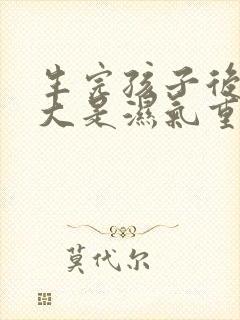 生完孩子後
大是濕氣重
莫代尔